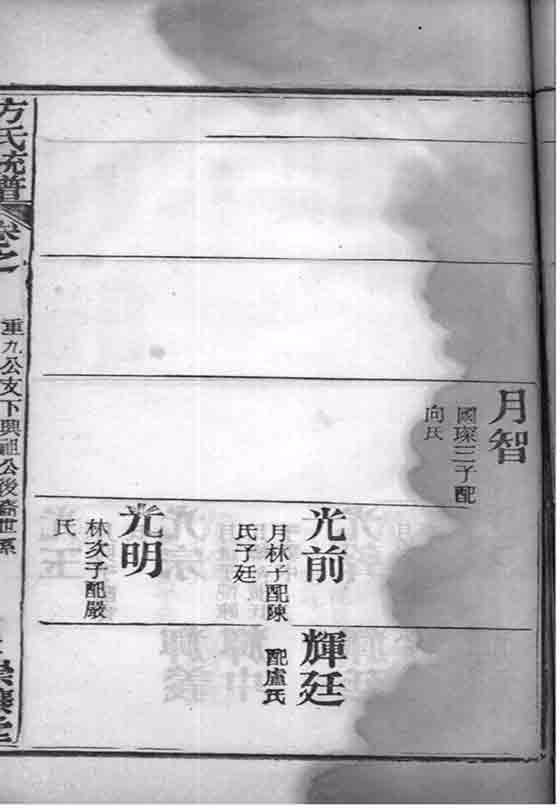 月智
國琛三子配
向氏
光前
月林子配陳
氏子廷
光明
林次子配嚴
氏
輝廷
配盧氏
方氏統譜
卷之
重九公支下興祖公後裔世系